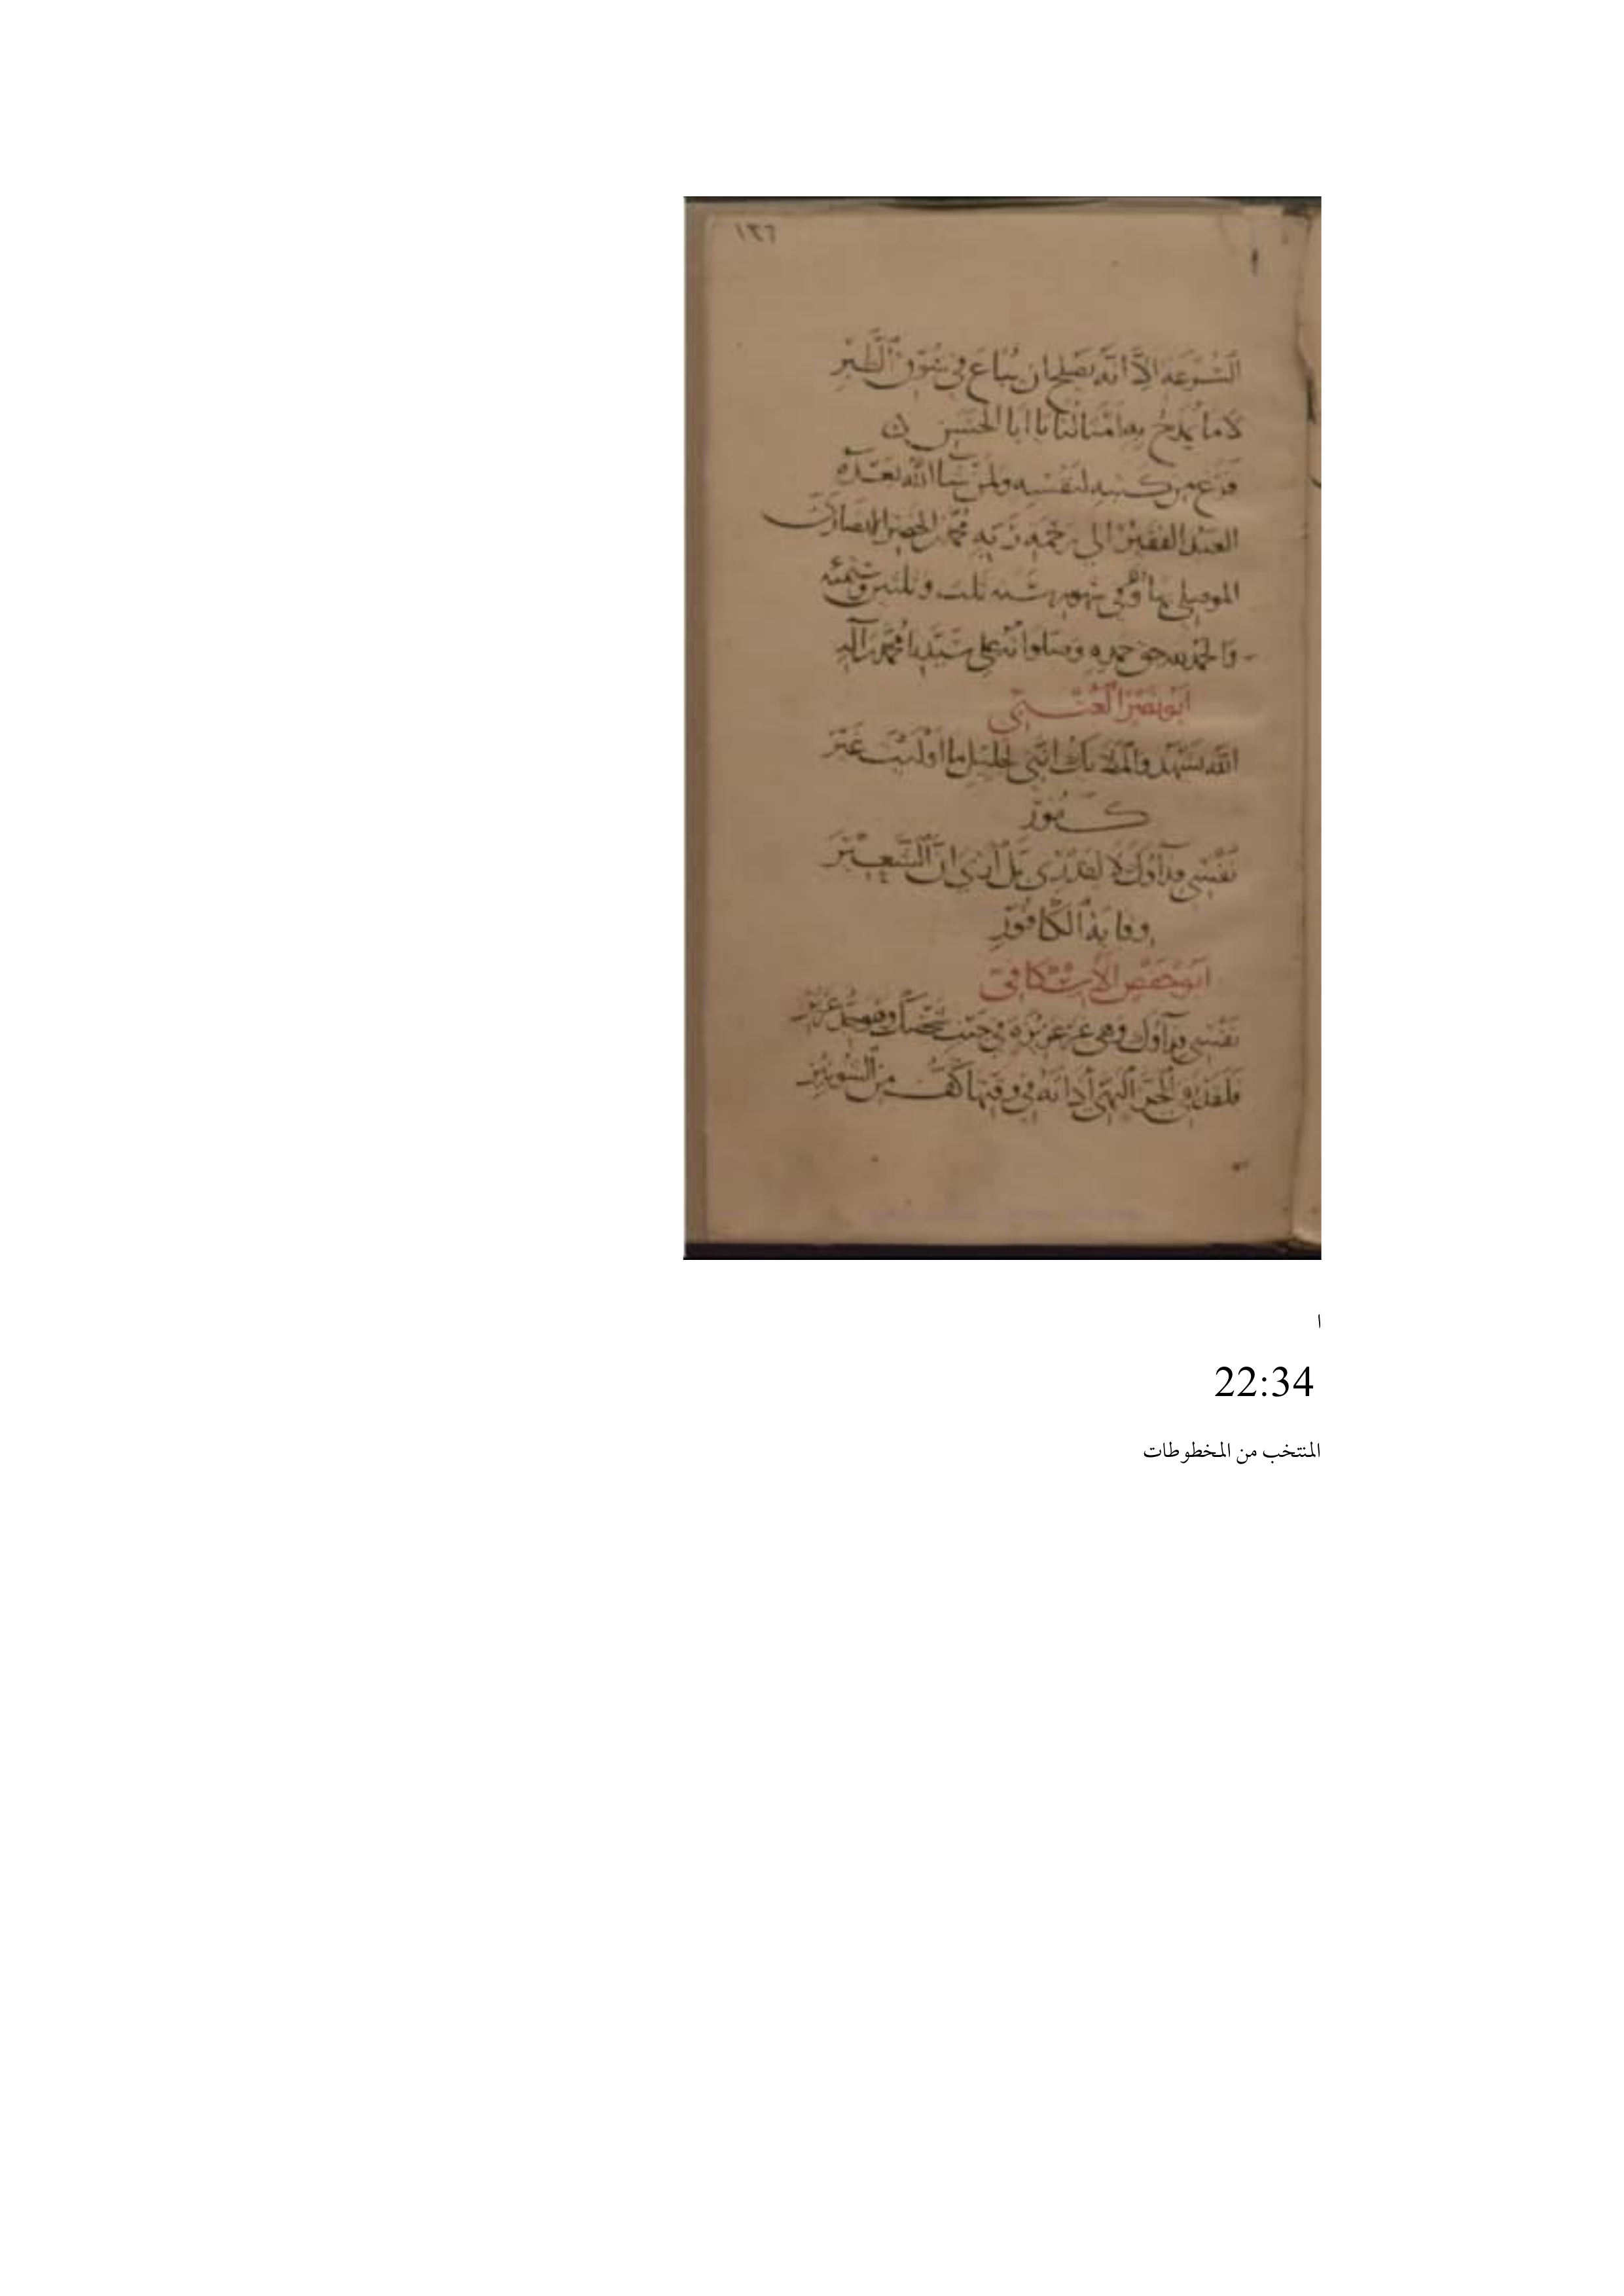 ١٣٦
السرعة الا انه يصلح ان يباع في سوق الطير
لا ما يمدح به امثالنا يا ابا الحسن
فرغ من كتبه لنفسه ولمن شا الله بعده
العبد الفقير الى رحمة ربه محمد الخضر
الموصلي في شهور سنه ثلث وثلثين
والحمد لله حق حمده وصلواته على سيدنا محمد وآله
أبو نصر العتبي
الله يشهد والملائك انني لجليل ما اوليت غير
كفور
نفسي فداؤك لا لقدري بل ارى ان الشعير
وقاية الكافور
أبو حفص الاسكافي
نفسي فداؤك وهي غير عزيزة في جنب شخصك وهو جد عزيز
فلقد الخز أذاته في وقتها كف من الشونيز
ا
22:34
المنتخب من المخطوطات